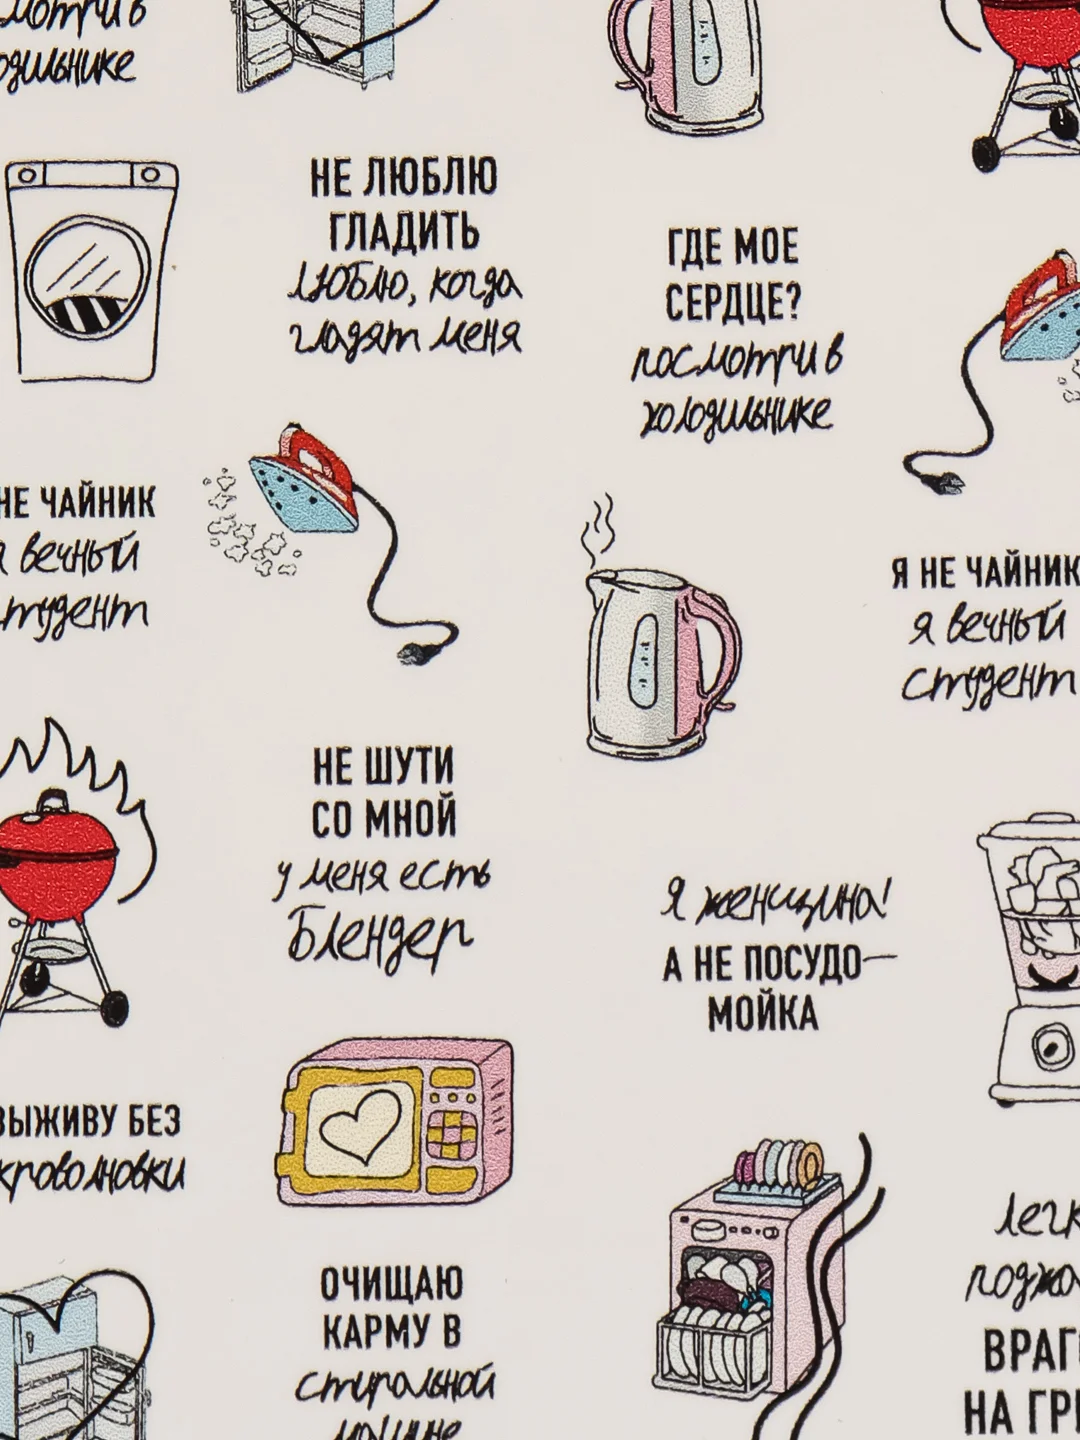 смотри в
холодильнике
НЕ ЛЮБЛЮ
ГЛАДИТЬ
люблю, когда
гладят меня
ГДЕ МОЕ
СЕРДЦЕ?
посмотри в
холодильнике
НЕ ЧАЙНИК
я вечный
студент
Я НЕ ЧАЙНИК
я вечный
студент
НЕ ШУТИ
СО МНОЙ
у меня есть
Блендер
Я женщина!
А НЕ ПОСУДО—
МОЙКА
ВЫЖИВУ БЕЗ
кроволновки
ОЧИЩАЮ
КАРМУ В
стиральной
машине
легк
поджа
ВРАГ
НА ГР